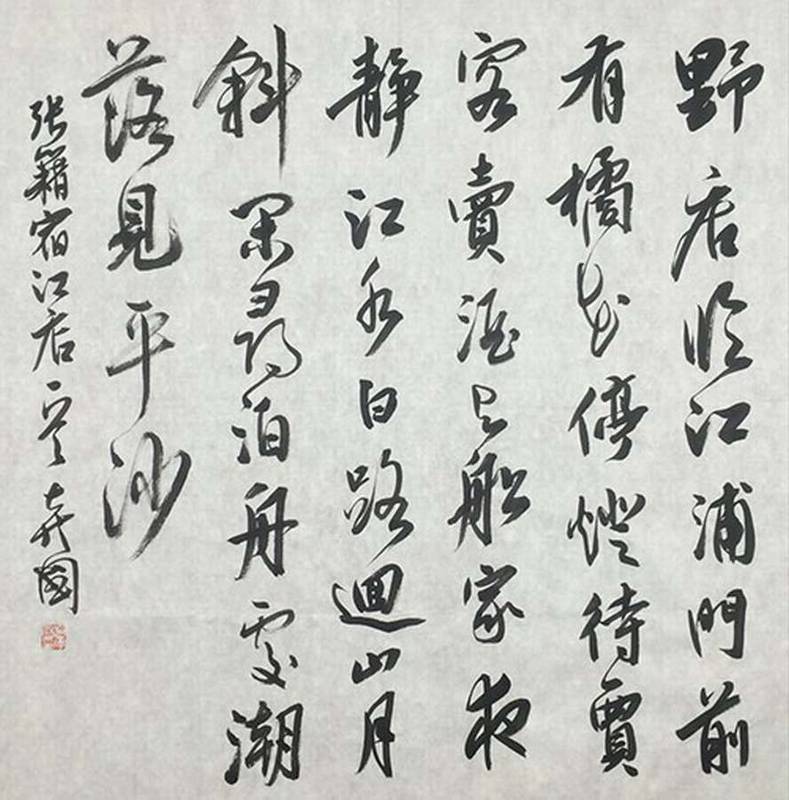 野店临江浦門前
有橘花停燈待賈
客賣酒与船家夜
静江水白路迴山月
斜閑尋泊舟處潮
落見平沙
张籍宿江店 國